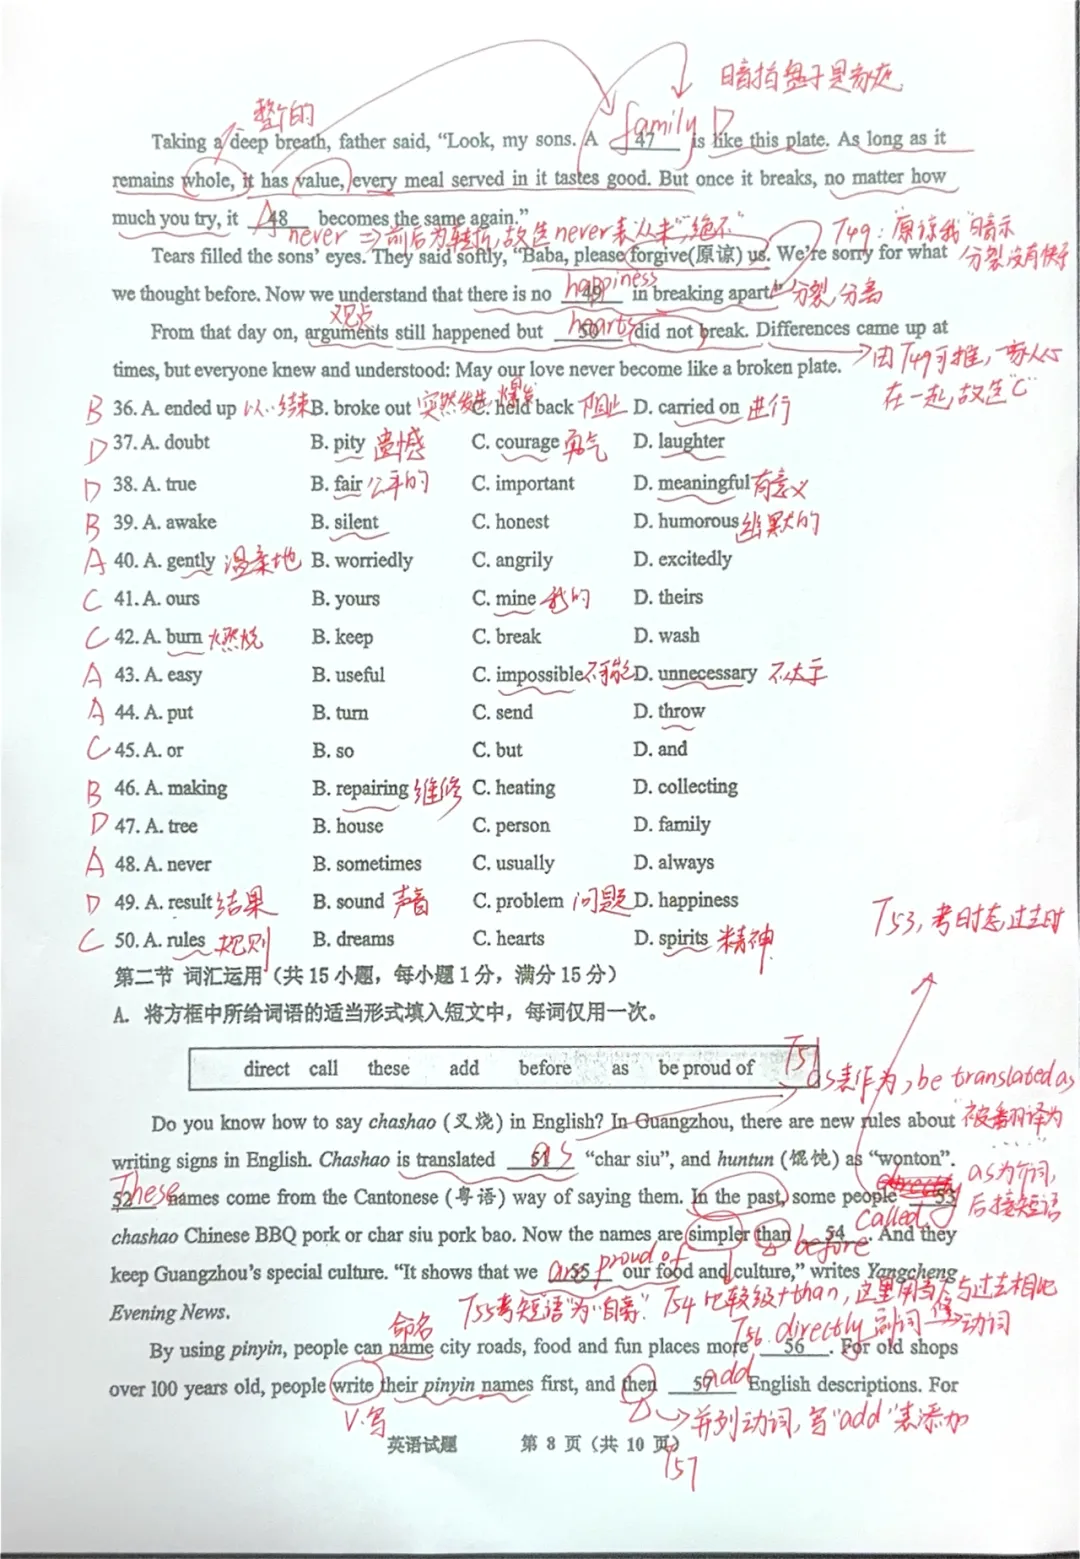 暗指盘子是家庭
整个的
family D
Taking a deep breath, father said, “Look, my sons. A 47 is like this plate. As long as it
remains whole, it has value, every meal served in it tastes good. But once it breaks, no matter how
much you try, it 48 becomes the same again.”
A
never ⇒ 前后为转折,故选never表从未“绝不”
T49:“原谅我”暗示
分裂没有快乐
Tears filled the sons’ eyes. They said softly, “Baba, please forgive(原谅) us. We’re sorry for what
we thought before. Now we understand that there is no 49 in breaking apart.”
happiness
分裂,分离
观点
From that day on, arguments still happened but 50 did not break. Differences came up at
hearts
times, but everyone knew and understood: May our love never become like a broken plate.
→因T49可推,家人心
在一起,故选“C”
B 36. A. ended up 以…结束 B. broke out 突然发生 爆发 C. held back 阻止 D. carried on 进行
D 37. A. doubt B. pity 遗憾 C. courage 勇气 D. laughter
D 38. A. true B. fair 公平的 C. important D. meaningful 有意义
B 39. A. awake B. silent C. honest D. humorous 幽默的
A 40. A. gently 温柔地 B. worriedly C. angrily D. excitedly
C 41. A. ours B. yours C. mine 我的 D. theirs
C 42. A. burn 燃烧 B. keep C. break D. wash
A 43. A. easy B. useful C. impossible 不可能 D. unnecessary 不必要
A 44. A. put B. turn C. send D. throw
C 45. A. or B. so C. but D. and
B 46. A. making B. repairing 维修 C. heating D. collecting
D 47. A. tree B. house C. person D. family
A 48. A. never B. sometimes C. usually D. always
D 49. A. result 结果 B. sound 声音 C. problem 问题 D. happiness
C 50. A. rules 规则 B. dreams C. hearts D. spirits 精神
T53,考时态过去时
第二节 词汇运用（共 15 小题，每小题 1 分，满分 15 分）
A. 将方框中所给词语的适当形式填入短文中，每词仅用一次。
direct call these add before as be proud of
T51
as表作为, be translated as
“被翻译为
Do you know how to say chashao (叉烧) in English? In Guangzhou, there are new rules about
writing signs in English. Chashao is translated 51 “char siu”, and huntun (馄饨) as “wonton”.
as
as为介词,
后接短语
These
52 names come from the Cantonese (粤语) way of saying them. In the past, some people 53
called
chashao Chinese BBQ pork or char siu pork bao. Now the names are simpler than 54. And they
before
keep Guangzhou’s special culture. “It shows that we 55 our food and culture,” writes Yangcheng
are proud of
Evening News.
T55考短语“为…自豪”
T54 比较级+than,这里用当下与过去相比
命名
T56. directly 副词修→动词
By using pinyin, people can name city roads, food and fun places more 56. For old shops
over 100 years old, people write their pinyin names first, and then 57 English descriptions. For
add
V.写
→并列动词,写“add”表添加
T57
英语试题 第 8 页（共 10 页）